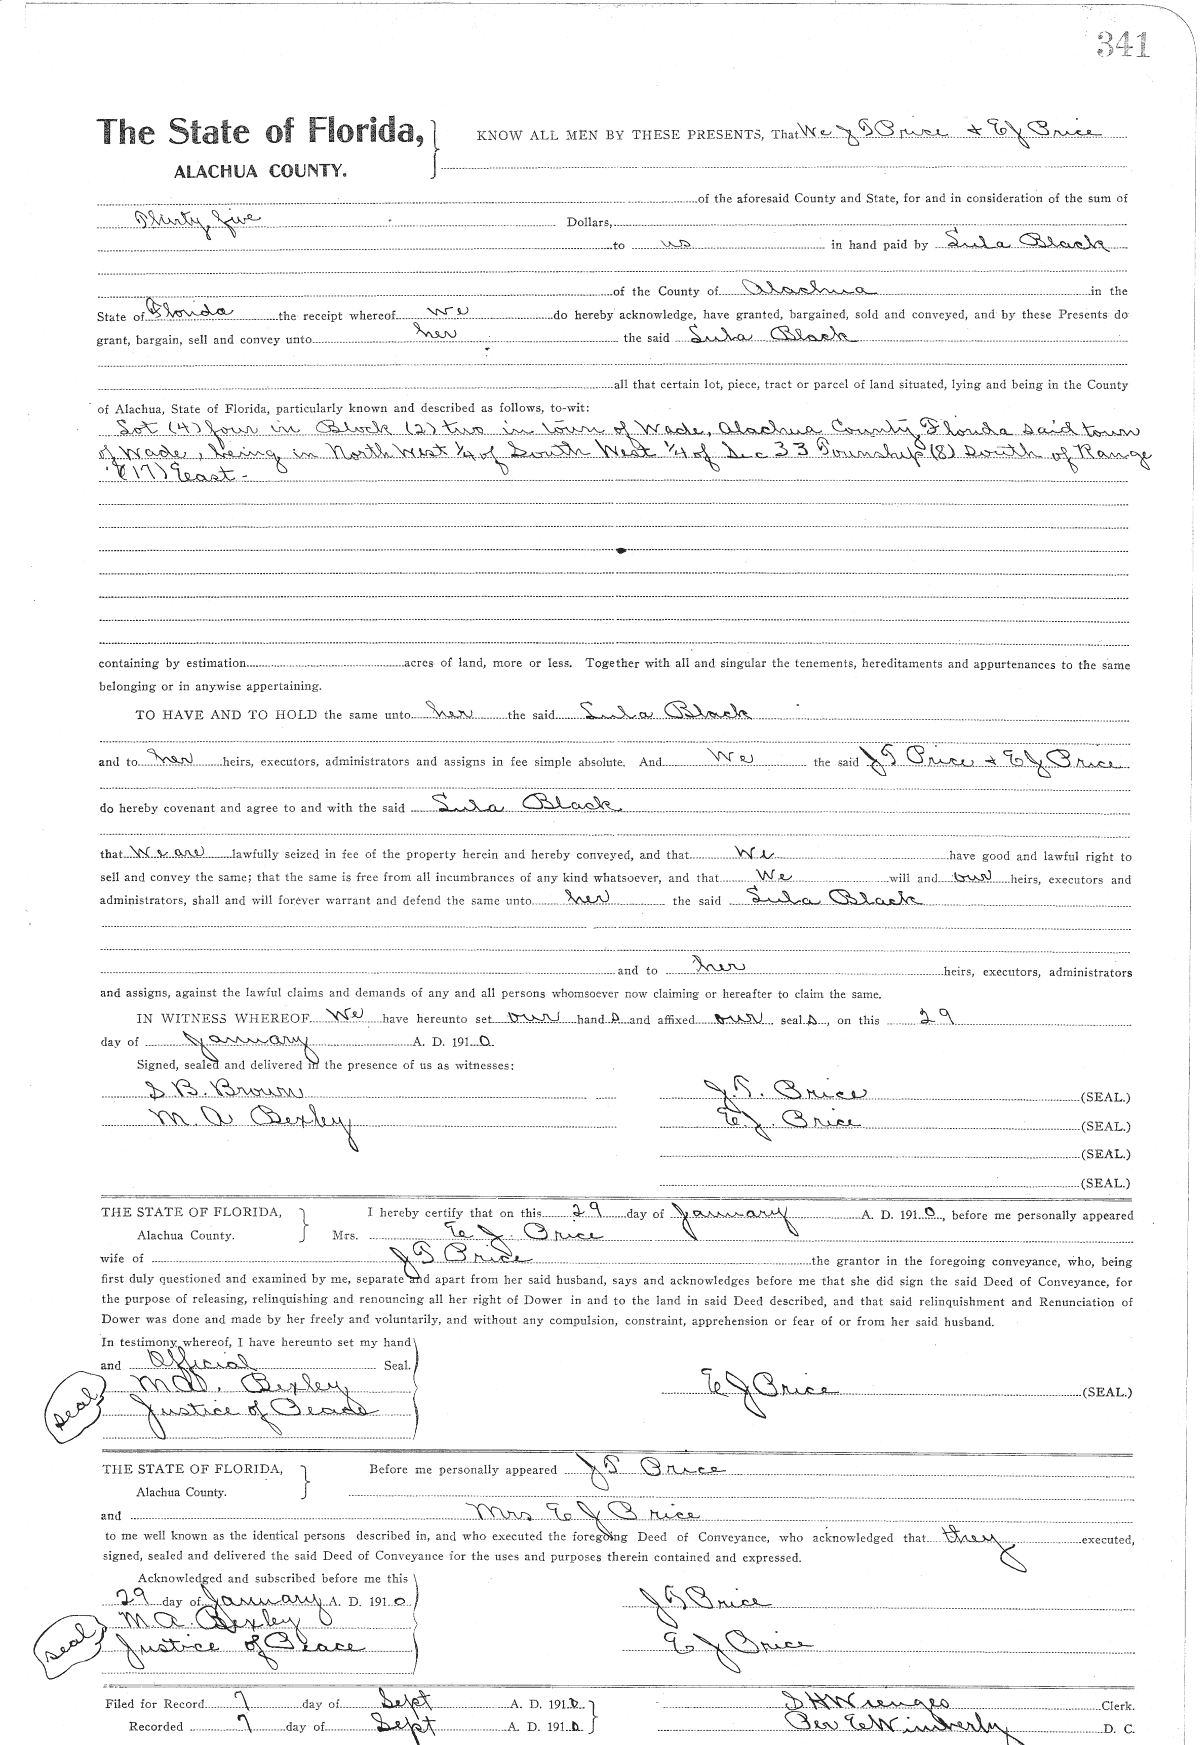 341
The State of Florida, KNOW ALL MEN BY THESE PRESENTS, That We J T Price & E J Price
ALACHUA COUNTY.
of the aforesaid County and State, for and in consideration of the sum of
Thirty five Dollars,
to us in hand paid by Lula Black
of the County of Alachua in the
State of Florida the receipt whereof We do hereby acknowledge, have granted, bargained, sold and conveyed, and by these Presents do
grant, bargain, sell and convey unto her the said Lula Black
all that certain lot, piece, tract or parcel of land situated, lying and being in the County
of Alachua, State of Florida, particularly known and described as follows, to-wit:
Lot (4) four in Block (2) two in town of Wade, Alachua County, Florida said town
of Wade, being in North West 1/4 of South West 1/4 of Sec 33 Township (8) South of Range
(17) East -
containing by estimation acres of land, more or less. Together with all and singular the tenements, hereditaments and appurtenances to the same
belonging or in anywise appertaining.
TO HAVE AND TO HOLD the same unto her the said Lula Black
and to her heirs, executors, administrators and assigns in fee simple absolute. And We the said J T Price & E J Price
do hereby covenant and agree to and with the said Lula Black
that We are lawfully seized in fee of the property herein and hereby conveyed, and that We have good and lawful right to
sell and convey the same; that the same is free from all incumbrances of any kind whatsoever, and that We will and our heirs, executors and
administrators, shall and will forever warrant and defend the same unto her the said Lula Black
and to her heirs, executors, administrators
and assigns, against the lawful claims and demands of any and all persons whomsoever now claiming or hereafter to claim the same.
IN WITNESS WHEREOF We have hereunto set our hand s and affixed our seal s, on this 29
day of January A. D. 1910.
Signed, sealed and delivered in the presence of us as witnesses:
S B. Brown J. T. Price (SEAL.)
M. A Bexley E. J. Price (SEAL.)
(SEAL.)
(SEAL.)
THE STATE OF FLORIDA, I hereby certify that on this 29 day of January A. D. 1910, before me personally appeared
Alachua County. Mrs. E J. Price
wife of J T Price the grantor in the foregoing conveyance, who, being
first duly questioned and examined by me, separate and apart from her said husband, says and acknowledges before me that she did sign the said Deed of Conveyance, for
the purpose of releasing, relinquishing and renouncing all her right of Dower in and to the land in said Deed described, and that said relinquishment and Renunciation of
Dower was done and made by her freely and voluntarily, and without any compulsion, constraint, apprehension or fear of or from her said husband.
In testimony whereof, I have hereunto set my hand
and Official Seal.
M A. Bexley E J Price (SEAL.)
seal Justice of Peace
THE STATE OF FLORIDA, Before me personally appeared J T Price
Alachua County.
and Mrs E J Price
to me well known as the identical persons described in, and who executed the foregoing Deed of Conveyance, who acknowledged that they executed,
signed, sealed and delivered the said Deed of Conveyance for the uses and purposes therein contained and expressed.
Acknowledged and subscribed before me this
29 day of January A. D. 1910 J T Price
M A. Bexley
seal Justice of Peace E J Price
Filed for Record 7 day of Sept A. D. 1910. S H Wienges Clerk.
Recorded 7 day of Sept A. D. 1910. Per E Wimberly D. C.